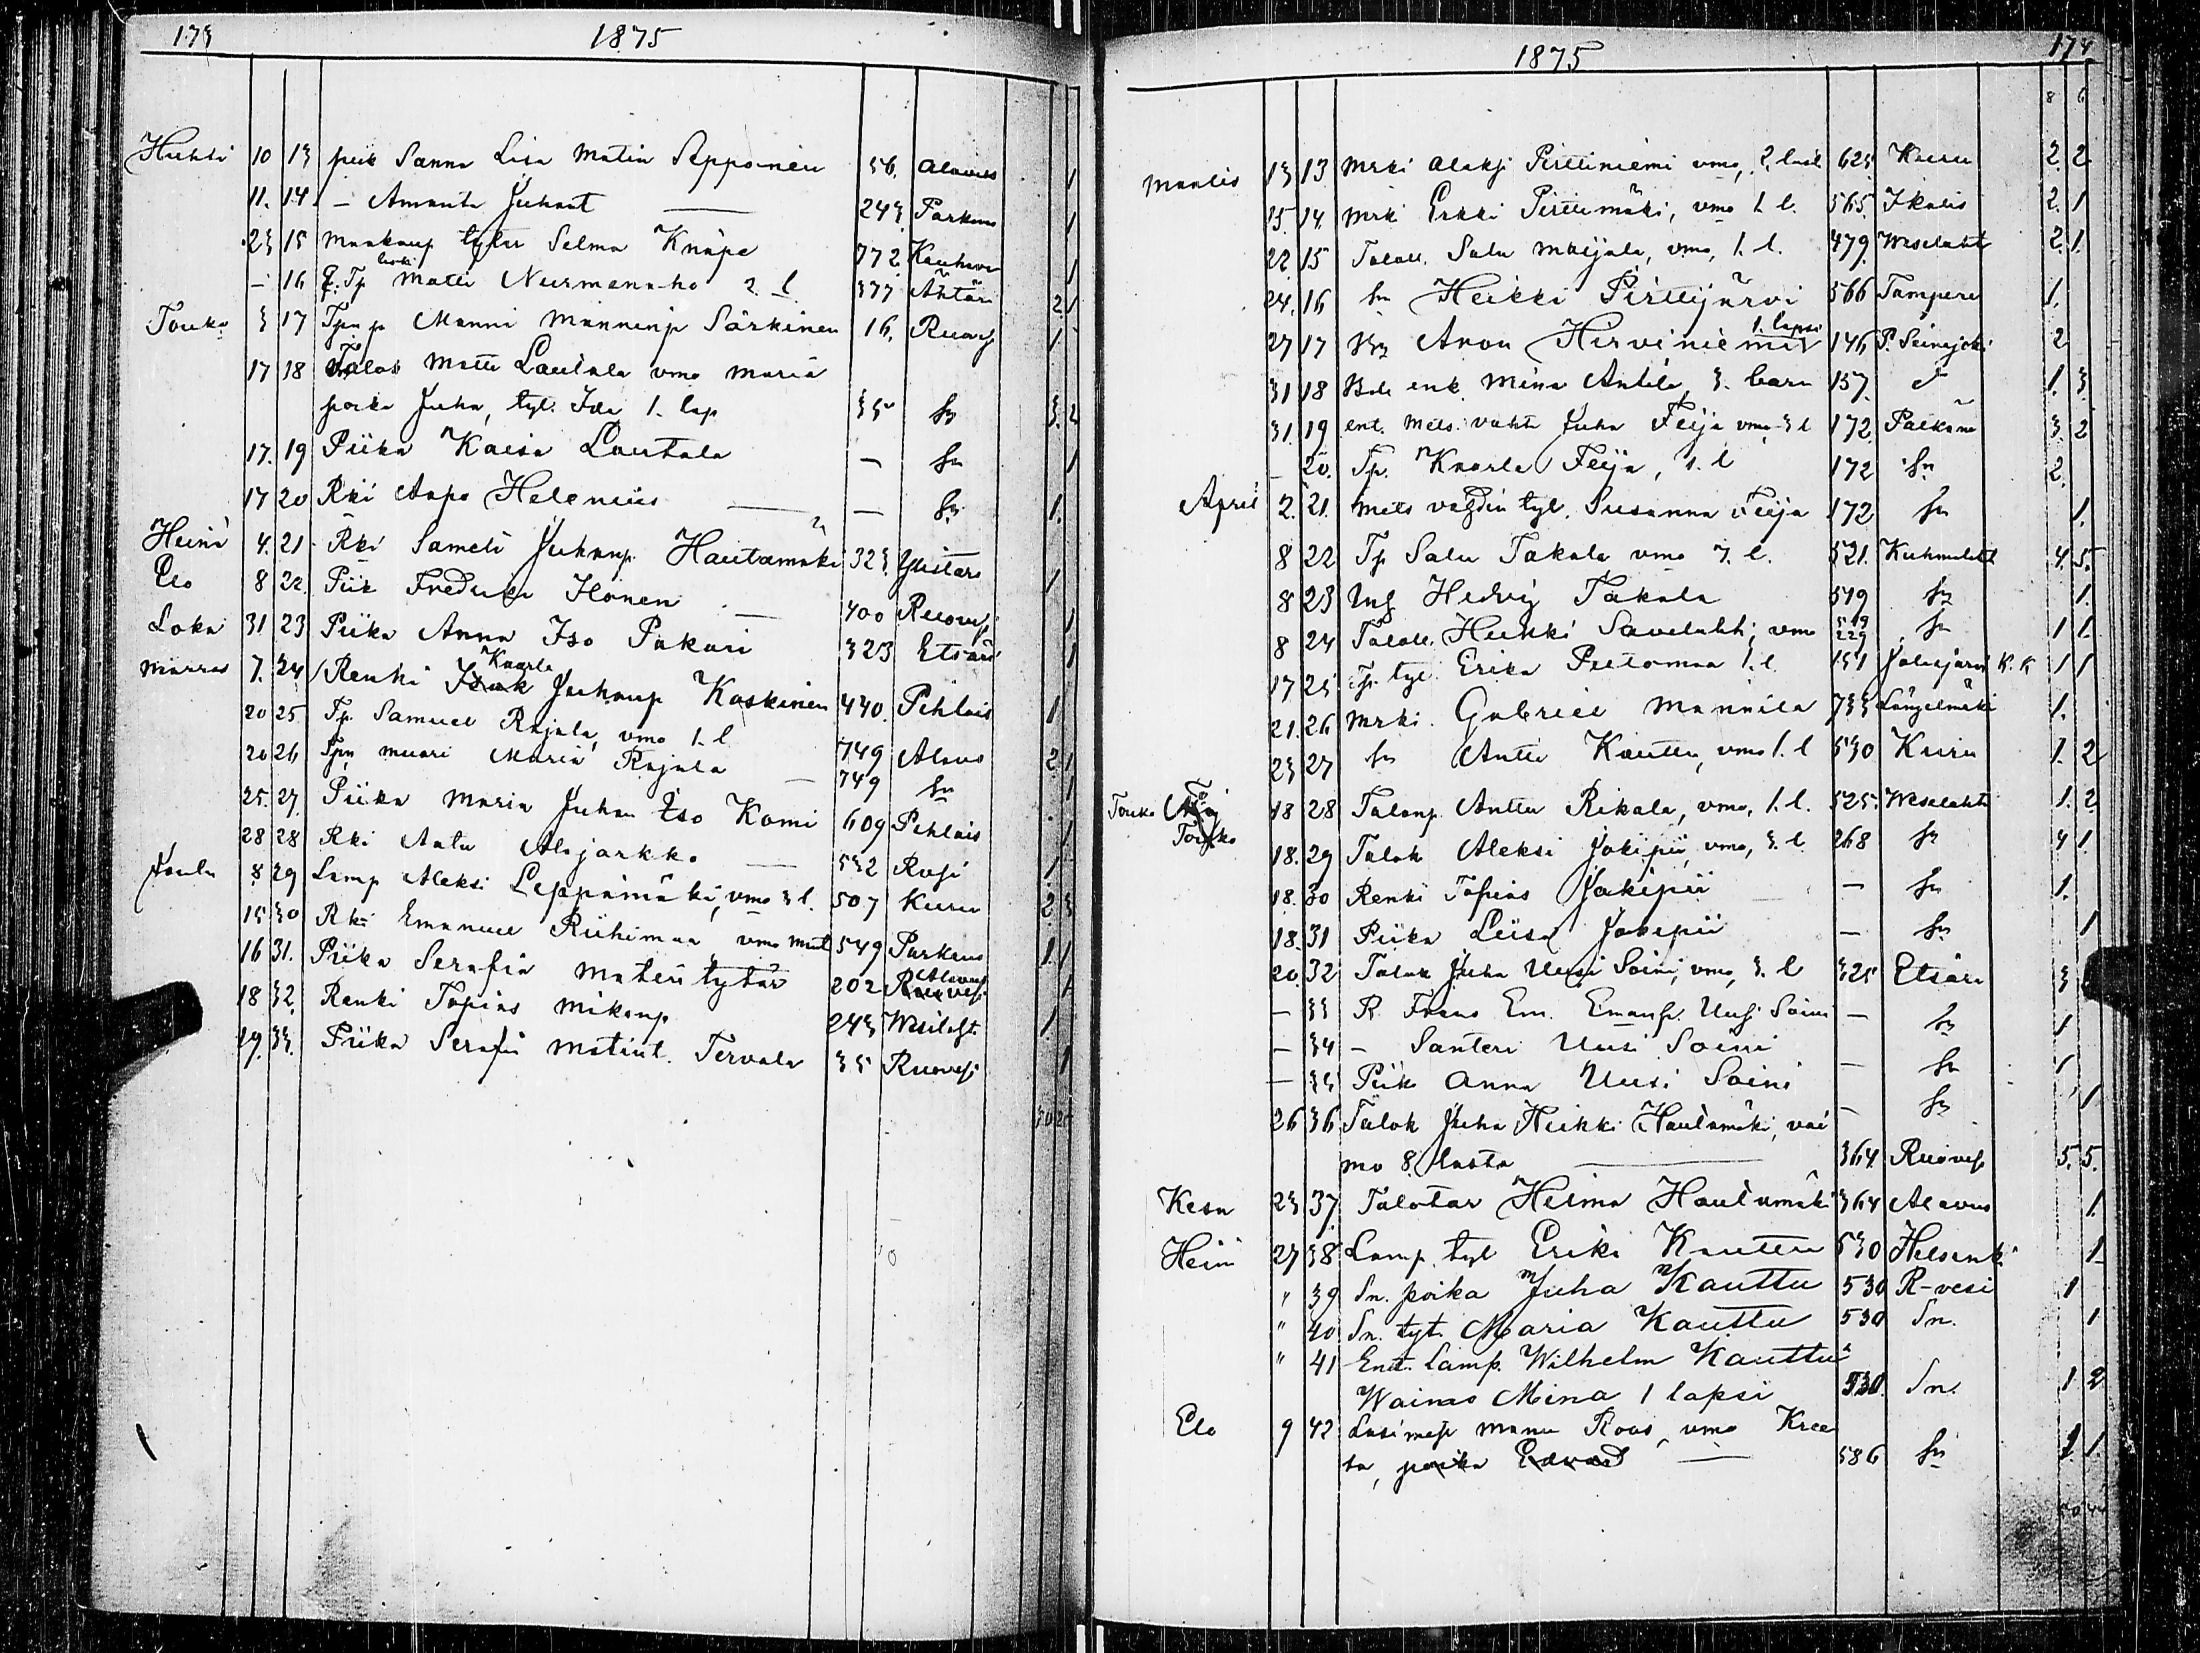 173
1875
Huhti 10 13 piik Sanna Lisa Matin Sepponen 56. Alavus 1
11. 14 - Amanta Juhant — 243. Parkano 1
23 15 Maakaup tytar Selma Knape 772. Kauhava 1
- 16 Tp leski Matti Nurmenaho 2. l 377 Ähtäri 2 1
Touko 3 17 Manni Manninp Särkinen 16. Ruoves 1
17 18 Talok Matti Lautala vmo Maria
poika Juha, tyt. Ida 1. lap 35 sn 3. 2
17. 19 Piika Kaisa Lautala — sn 1
17 20 Rki Aapo Helenius — — sn 1.
Heinä 4. 21 Rki Sameli Juhanp Hautamäki 323.
Elo 8 22. Piik Fredrika Ilonen — 400 Ruoves 1
Loka 31 23 Piika Anna Iso Pakari 323 Etsäri 1
Marras 7. 24 Renki Kaarle Juhanp Koskinen 440. Pihlais 1
20 25 Tp. Samuel Rajala, vmo 1. l 749 Alavus 2 1
20 26 muori Maria Rajala — 749 sn 1
25. 27. Piika Maria Juhan Iso Komi 609 Pihlais 1
28 28 Rki Antu Alajarkko — 532 Rvesi 1.
Joulu 8 29 Lamp Aleksi Leppämäki, vmo 3 l. 507 Kuru 2 3
15 30 Rki Emanuel Riihimaa vmo 549 Parkano 1. 1
16 31. Piika Serafia Matin tytär 202 Alavus 1
18 32. Renki Topias Mikonp 243 Wesilaht 1.
19. 33. Piika Serafia Matint. Tervala 35 Ruoves 1
174
1875
8 6
Maalis 13 13 Mrki Pirttiniemi vmo, 2 last 623 Kuru 2. 2
15. 14. Mrki Erkki Pirttimäki, vmo 1 l. 565. Ikalis 2. 1
22. 15 Talol. Salu Marjala, vmo, 1. l. 479. Wesilahti 2. 1.
24. 16 sn Heikki Pirttijärvi 566 Tampere 1.
27 17 Aron Hirviniemi 1. lapsi 146 P. Seinäjoki 2
31 18 enk. Mina Antila, 3. barn 137. 1. 3
31. 19 ent. Mets. vahti Juha Feija vmo 3 l 172. Pälkäne 3. 2
- 20. Tp. Kaarle Feija, 1. l 172 sn 2.
April 2. 21. Mets vagdin tyt. Susanna Feija 172 sn 1.
8 22 Tp Salu Takala vmo 7. l. 521. Kuhmalaht 4. 5.
8 23 Hedvig Takala 519 sn 1.
8 24 Talol. Heikki Savelahti, vmo 519 229 sn 1 1
17 25 Tp. tyt. Erika Peltomaa 1. l. 151 Jalasjärvi K. K 1 1
21. 26 Mrki. Gabriel Mannila 733 Längelmäki 1.
23 27 sn Antti Kauttu, vmo 1. l 530 Kuru 1. 2
Touko 18 28 Talonp Anttu Rikala, vmo, 1. l. 525. Wesilahti 1. 2
Touko 18. 29 Talok Aleksi Jokipii, vmo, 3. l. 268 sn 4 1.
18. 30 Renki Topias Jokipii — sn 1.
18. 31 Piika Liisa Jokipii — sn 1
20. 32 Talok Juha Uusi Soini, vmo, 3. l 325 Etsäri 3
- 33 R. Frans Em. Emanp. Uusi Soini — sn 1
- 34 - Santeri Uusi Soini — sn 1
- 35 Piik Anna Uusi Soini — sn 1
26 36 Talok Juha Heikki Hautamäki, vai
mo 8. lasta — 364. Ruoves 5. 5.
Kesä 23 37. Talotar Helma Hautamäki 364 Alavus 1.
Hein 27 38 Lamp. tyt Eriki Kauttu 530 Helsinki 1
" 39 Sn. poika Juha Kauttu 530 R-vesi 1
" 40 Sn. tyt. Maria Kauttu 530 Sn. 1
" 41 Ent. Lamp. Wilhelm Kauttu
Waimo Mina 1 lapsi 530. Sn. 1 2
Elo 9 42 Lasimest Manu Roos, vmo Kree
ta, poika Edvard — 586 sn 1 1.